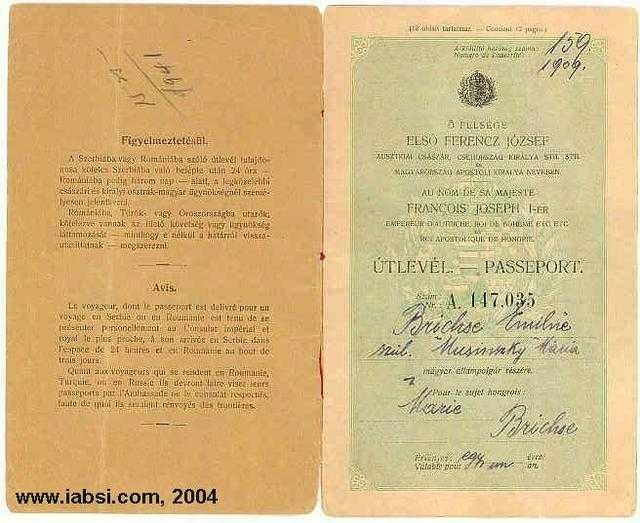 1941
Figyelmeztetésül.
A Szerbiába vagy Romániába szóló útlevél tulajdo-
nosa köteles Szerbiába való belépte után 24 óra —
Romániába pedig három nap — alatt, a legközelebbi
császári és királyi osztrák-magyar ügynökségnél szemé-
lyesen jelentkezni.
Romániába, Török- vagy Oroszországba utazók,
kötelezve vannak az illető követség vagy ügynökség
láttamozását — minthogy e nélkül a határról vissza-
utasíttatnak — megszerezni.
Avis.
Le voyageur, dont le passeport est delivré pour un
voyage en Serbie ou en Roumanie est tenu de se
présenter personellement au Consulat impérial et
royal le plus proche, à son arrivée en Serbie dans
l'espace de 24 heures et en Roumanie au bout de
trois jours.
Quant aux voyageurs qui se rendent en Roumanie,
Turquie, ou en Russie ils devront faire viser leurs
passeports par l'Ambassade ou le consulat respectifs,
faute de quoi ils seraient renvoyés des frontières.
www.iabsi.com, 2004
(12 oldalt tartalmaz. — Contient 12 pages.)
A kiállító hatóság száma:
Numéro de l'autorité:
159
1909.
Ő FELSÉGE
ELSŐ FERENCZ JÓZSEF
AUSZTRIAI CSÁSZÁR, CSEHORSZÁG KIRÁLYA STB. STB.
ÉS
MAGYARORSZÁG APOSTOLI KIRÁLYA NEVÉBEN.
AU NOM DE SA MAJESTÉ
FRANÇOIS JOSEPH I-ER
EMPEREUR D'AUTRICHE, ROI DE BOHÈME ETC. ETC.
ET
ROI APOSTOLIQUE DE HONGRIE.
ÚTLEVÉL. —, PASSEPORT.
Szám
Nr. A 147.035
Brichse Emilné
szül. Musinszky Mária
magyar állampolgár részére.
Pour le sujet hongrois:
Marie
Brichse
Érvényes: egy évre.
Valable pour un an.